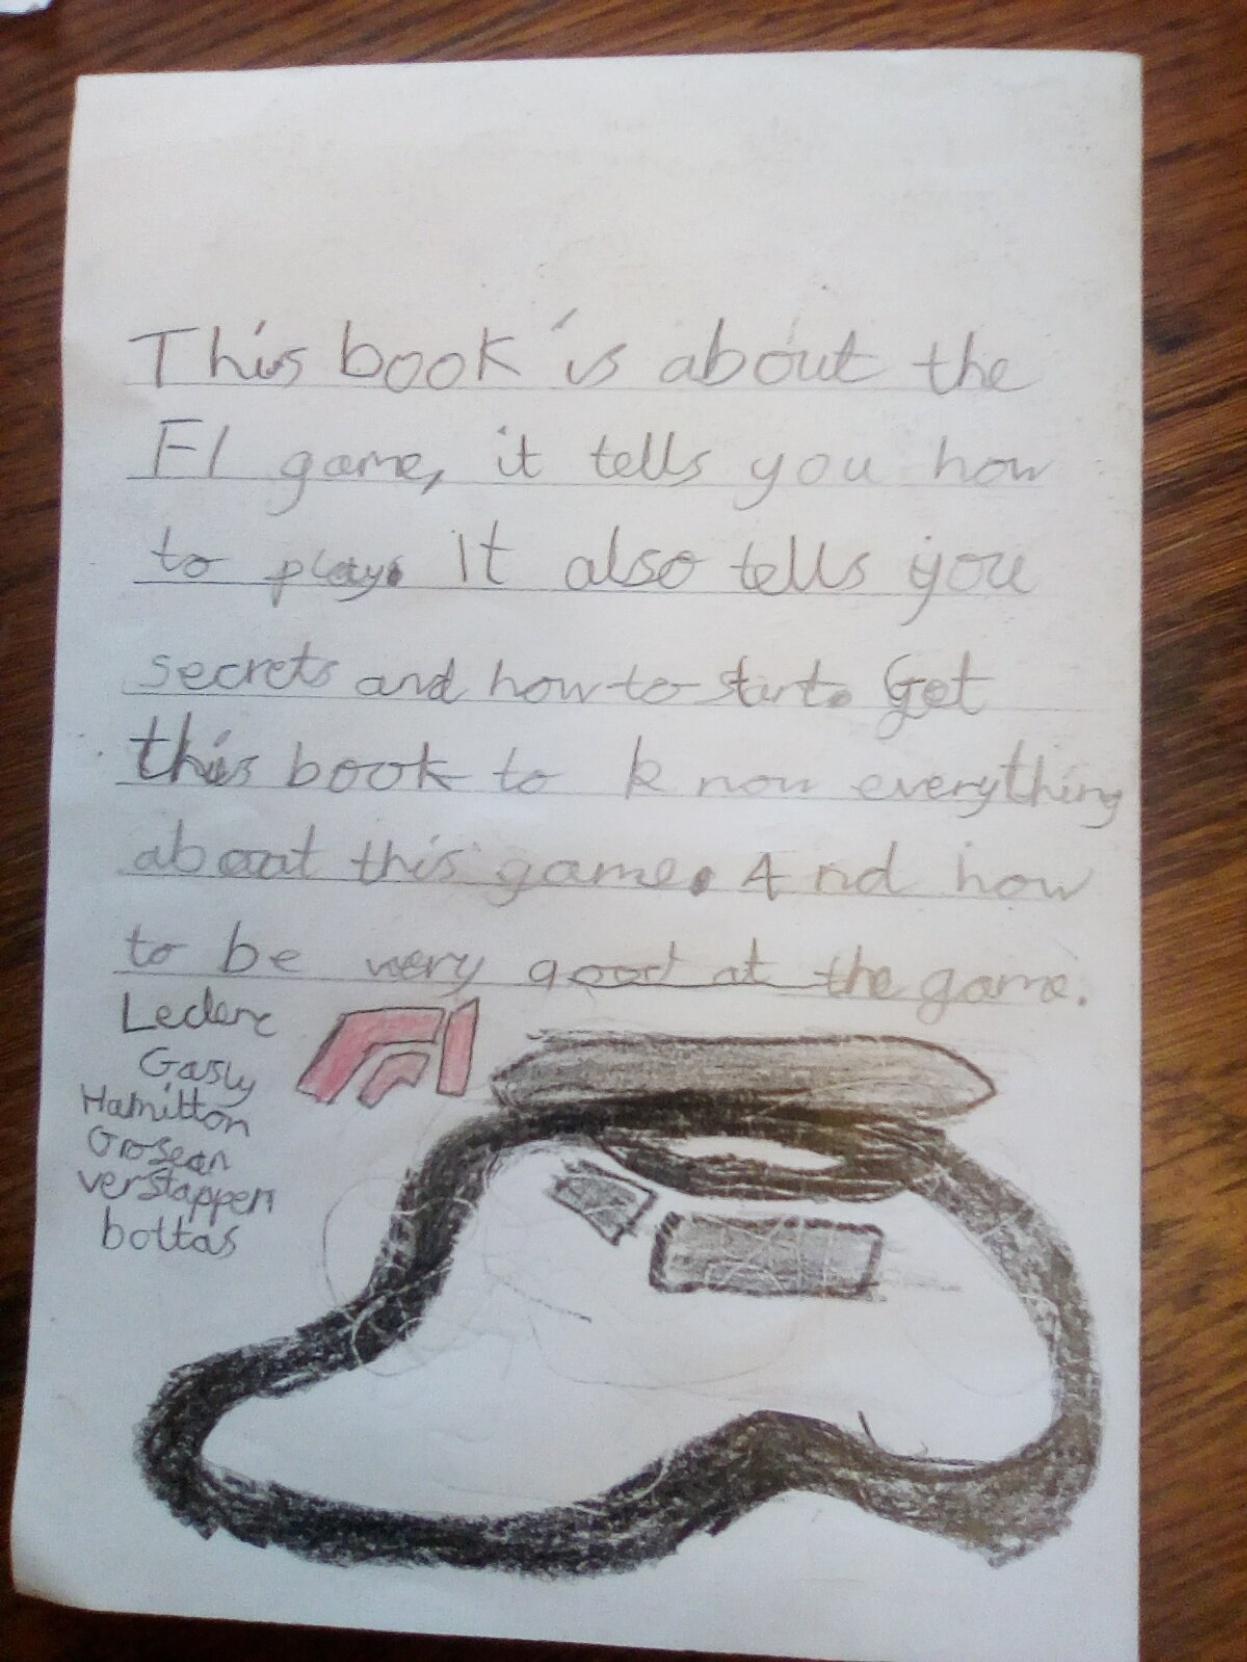 This book is about the
F1 game, it tells you how
to play. It also tells you
secrets and how to start. Get
this book to know everything
about this game. And how
to be very good at the game.
Leclerc
Gasly
Hamilton
Grosean
verstappen
bottas
F1